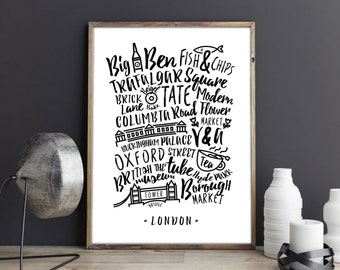 Big Ben FISH & CHIPS
TRAFALGAR Square
BRICK Lane TATE Modern
COLUMBIA Road Flower MARKET
BUCKINGHAM PALACE V&A
OXFORD STREET TEA
BRITISH museum THE tube Hyde PARK
TOWER BRIDGE Borough MARKET
• LONDON •